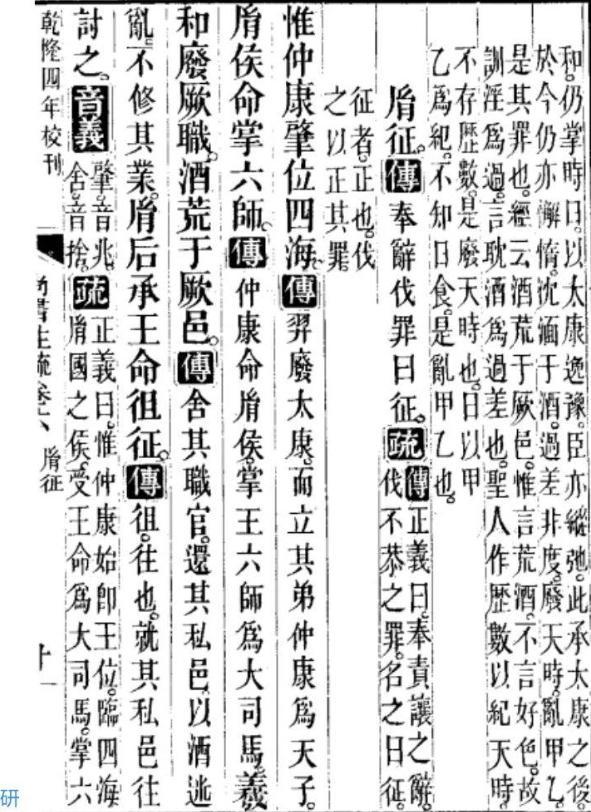 和仍掌時日以太康逸豫臣亦縱弛此承太康之後
於今仍亦懈惰沈湎于酒過差非度廢天時亂甲乙
是其罪也經云酒荒于厥邑惟言荒酒不言好色故
訓淫爲過言耽酒爲過差也聖人作歷數以紀天時
不存歷數是廢天時也日以甲
乙爲紀不知日食是亂甲乙也
胤征傳奉辭伐罪曰征疏傳正義曰奉責讓之辭
伐不恭之罪名之曰征
征者正也伐
之以正其罪
惟仲康肇位四海傳羿廢太康而立其弟仲康爲天子
胤侯命掌六師傳仲康命胤侯掌王六師爲大司馬羲
和廢厥職酒荒于厥邑傳舍其職官還其私邑以酒迷
亂不修其業胤后承王命徂征傳徂往也就其私邑往
討之音義肇音兆
舍音捨疏正義曰惟仲康始卽王位臨四海
胤國之侯受王命爲大司馬掌六
乾隆四年校刊
尚書注疏卷六 胤征
十一
研